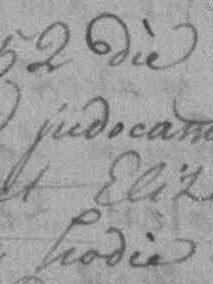 52 die
judocam
et Eliz
hodie